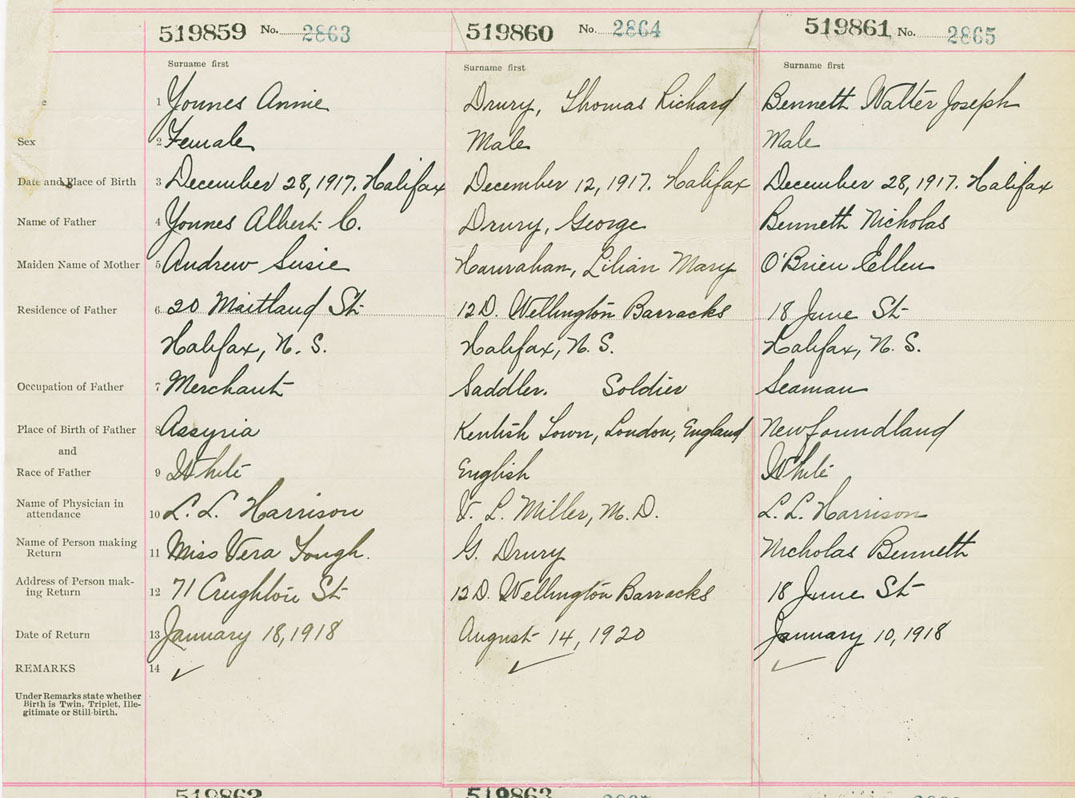 519859 No. 2863
519860 No. 2864
519861 No. 2865
Surname first
Surname first
Surname first
1 Younes Annie
Drury, Thomas Richard
Bennett Walter Joseph
Sex
2 Female
Male
Male
Date and Place of Birth
3 December 28, 1917. Halifax
December 12, 1917. Halifax
December 28, 1917. Halifax
Name of Father
4 Younes Albert C.
Drury, George
Bennett Nicholas
Maiden Name of Mother
5 Andrew Susie
Hanrahan, Lilian Mary
O'Brien Ellen
Residence of Father
6 20 Maitland St
12 D. Wellington Barracks
18 June St
Halifax, N. S.
Halifax, N. S.
Halifax, N. S.
Occupation of Father
7 Merchant
Saddler. Soldier
Seaman
Place of Birth of Father
8 Assyria
Kentish Town, London, England
Newfoundland
and
Race of Father
9 White
English
White
Name of Physician in
attendance
10 L. L. Harrison
V. L. Miller, M. D.
L. L. Harrison
Name of Person making
Return
11 Miss Vera Tough.
G. Drury
Nicholas Bennett
Address of Person mak-
ing Return
12 71 Creighton St
12 D. Wellington Barracks
18 June St
Date of Return
13 January 18, 1918
August 14, 1920
January 10, 1918
REMARKS
14 ✓
✓
✓
Under Remarks state whether
Birth is Twin, Triplet, Ille-
gitimate or Still-birth.
519862
519863